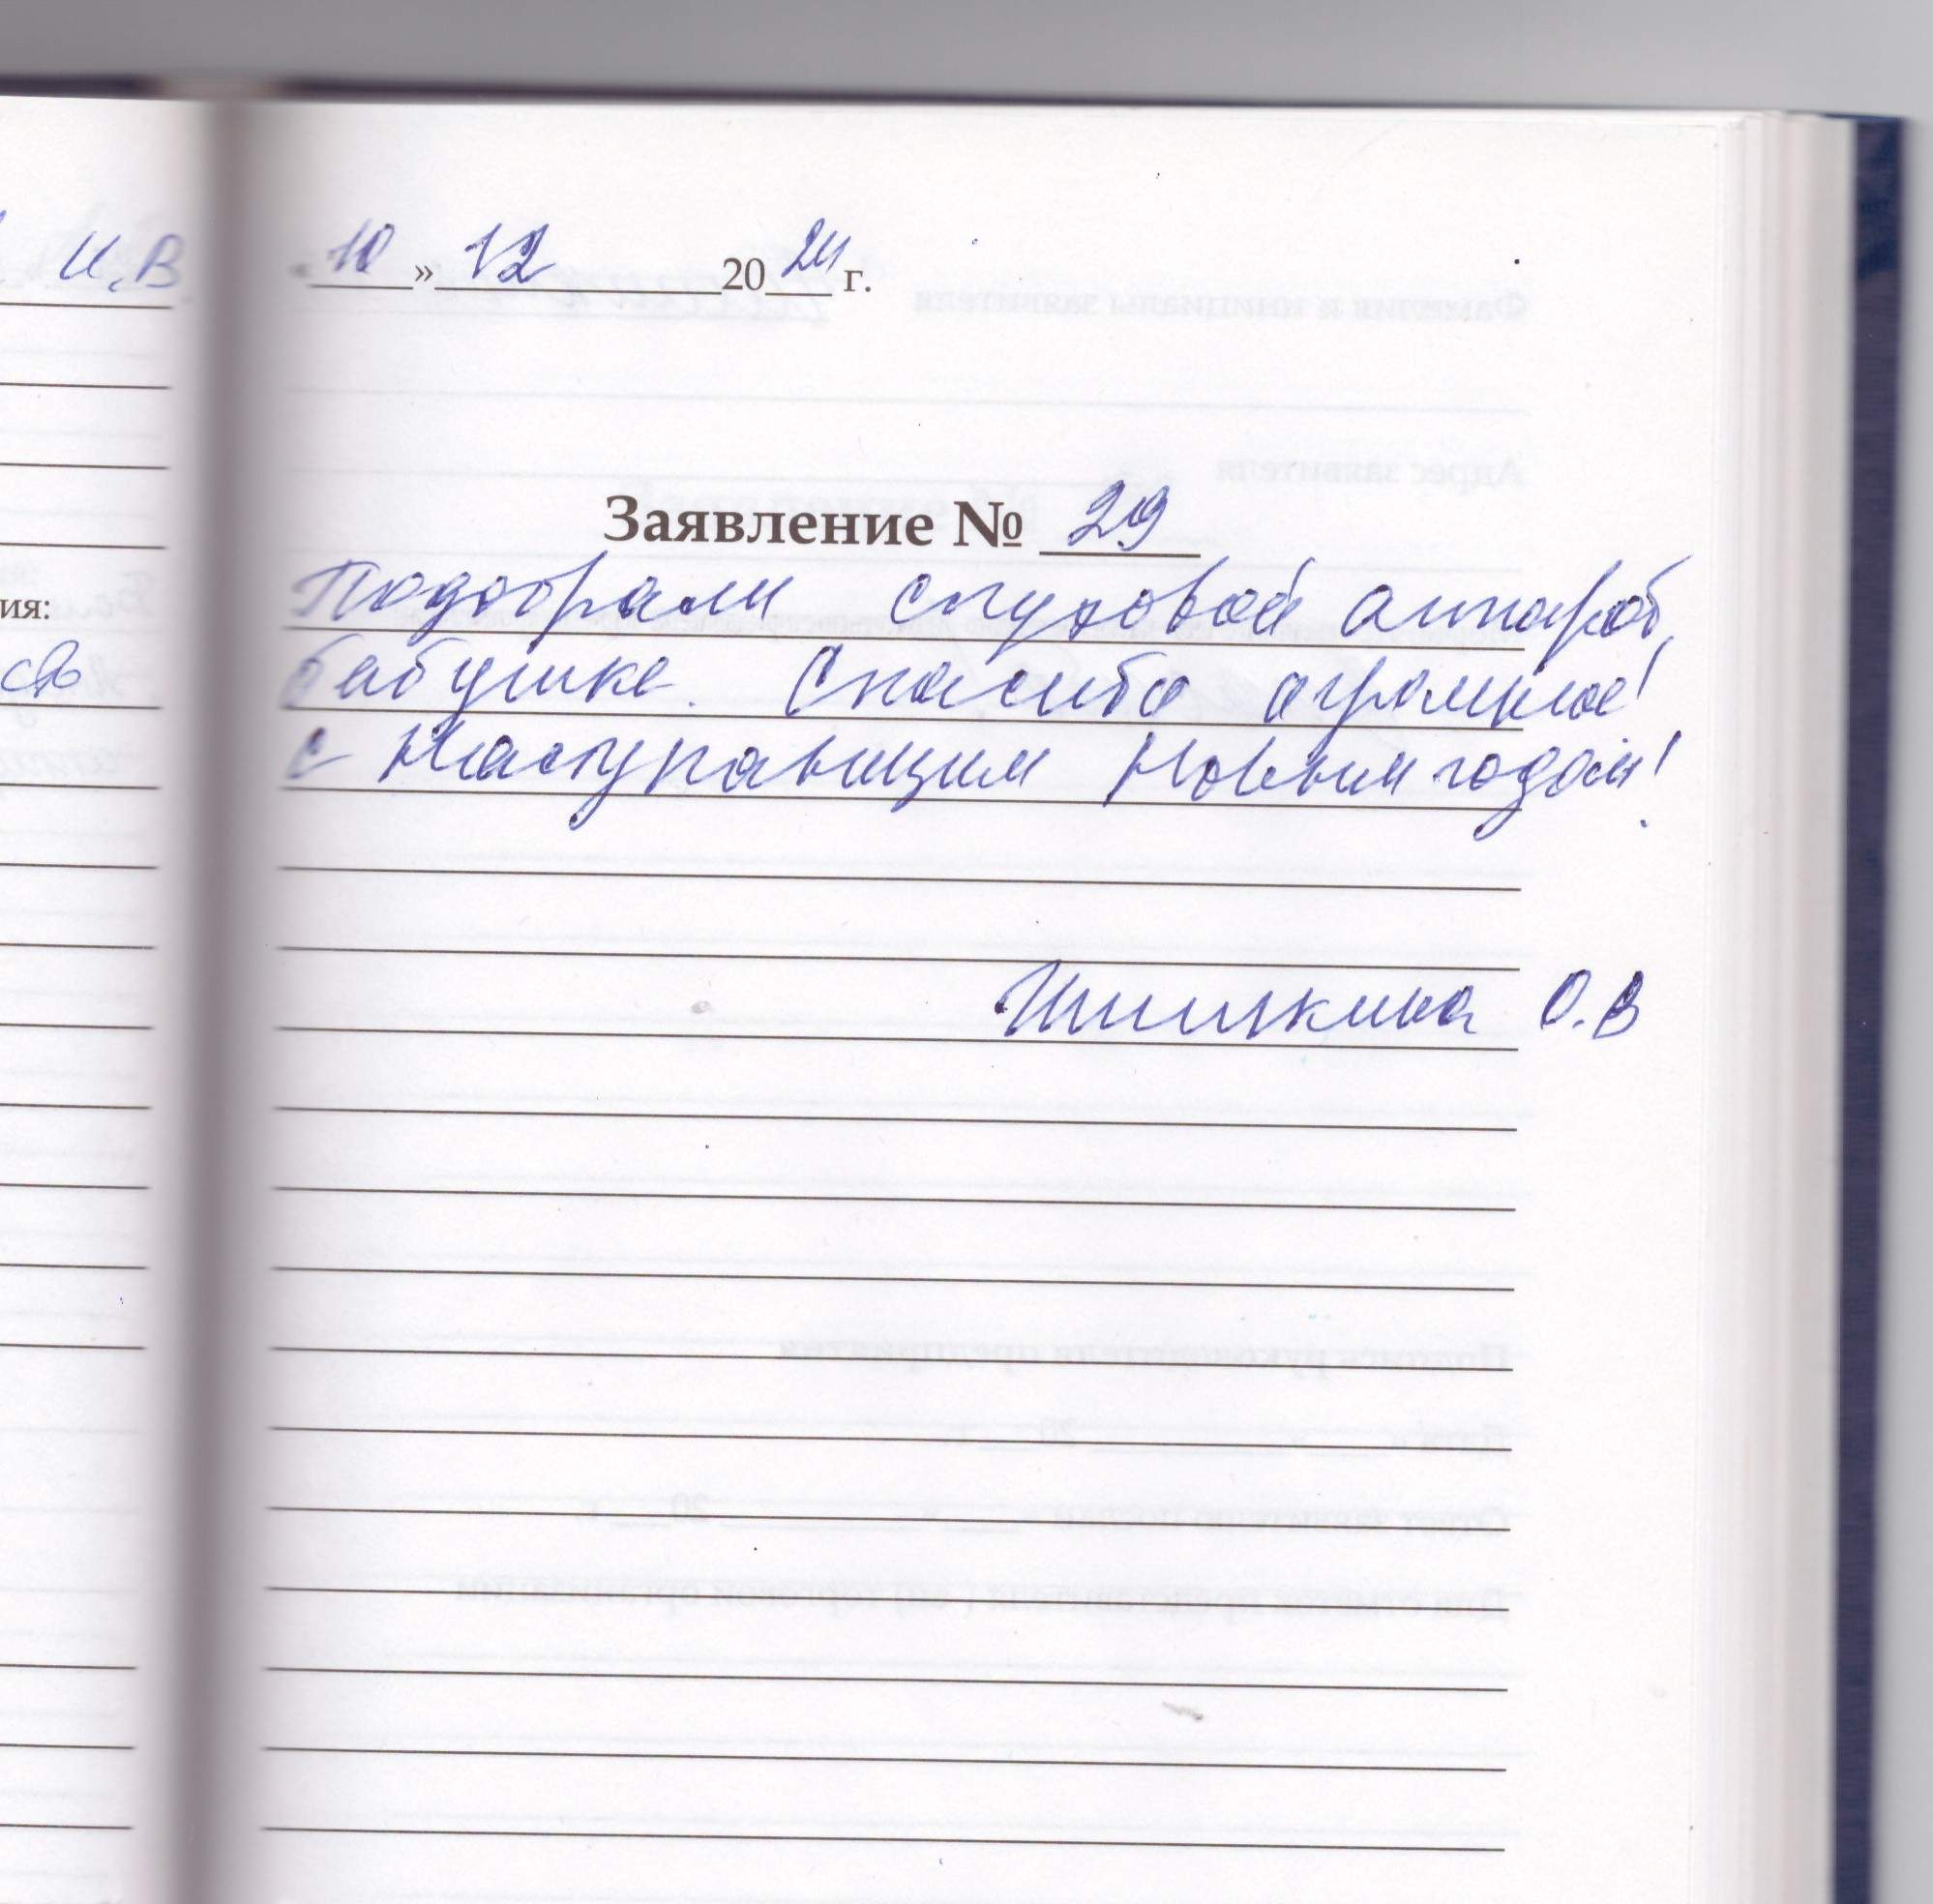 И.В.
«10» 12 2024 г.
Заявление № 29
ия:
Подобрали слуховой аппарат,
бабушке. Спасибо огромное!
с Наступающим Новым годом!
Шишкина О.В